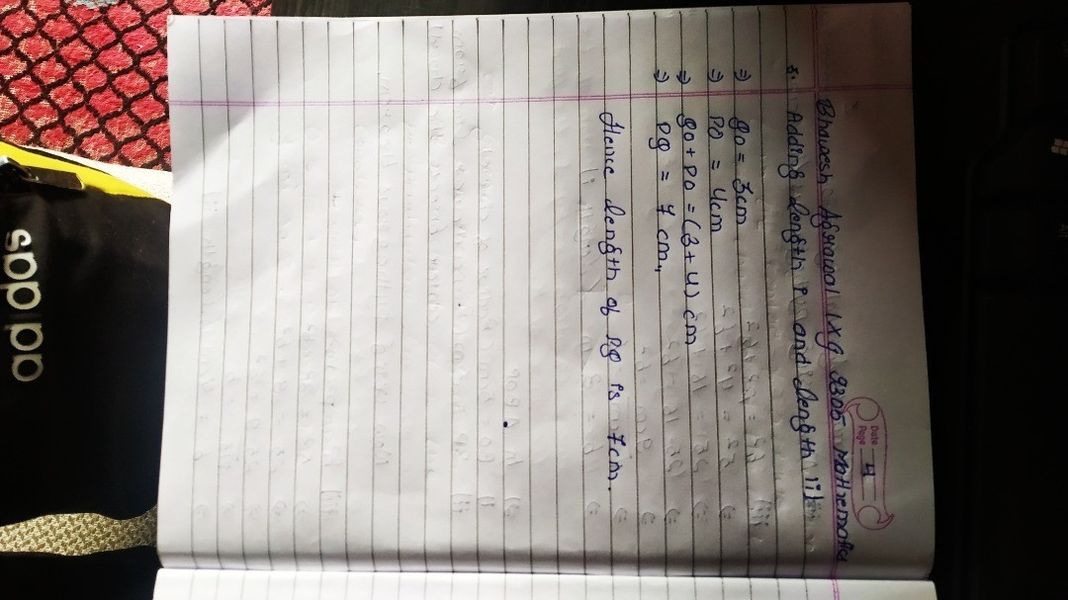 Date
Page 4
Bhawesh Agrawal IXG 9305 Mathematics
Adding length P and length ii)
⇒ QO = 3cm
⇒ PO = 4cm
⇒ QO + PO = (3+4) cm
⇒ PQ = 7 cm,
Hence length of PQ is 7cm.
adidas